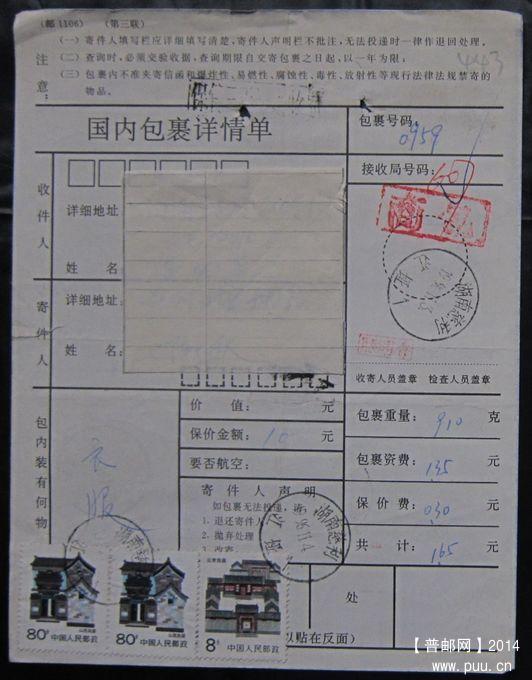 （邮 1106）　（第三联）
注意：
（一）寄件人填写栏应详细填写清楚，寄件人声明栏不批注，无法投递时一律作退回处理。
（二）查询时，必须交验收据，查询期限自交寄包裹之日起，以一年为限；
（三）包裹内不准夹寄信函和爆炸性、易燃性、腐蚀性、毒性、放射性等或现行法律法规禁寄的
物品。
443
国内包裹详情单
包裹号码：
0959
接收局号码：
收件人
详细地址
姓 名
寄件人
详细地址：
姓 名：
湖南慈利
收寄人员盖章 检查人员盖章
包内装有何物
衣服
价 值： 元
保价金额： 10 元
要否航空：
包裹重量： 910 克
包裹资费： 135 元
保价费： 030 元
共 计： 165 元
寄件人声明
如包裹无法投递，请
1. 退还寄件人
2. 抛弃处理
3. 改寄
湖南慈利
湖南
处
以贴在反面）
山西民居
80分 中国人民邮政
山西民居
80分 中国人民邮政
北京民居
8分 中国人民邮政
【普邮网】2014
www.puu.cn